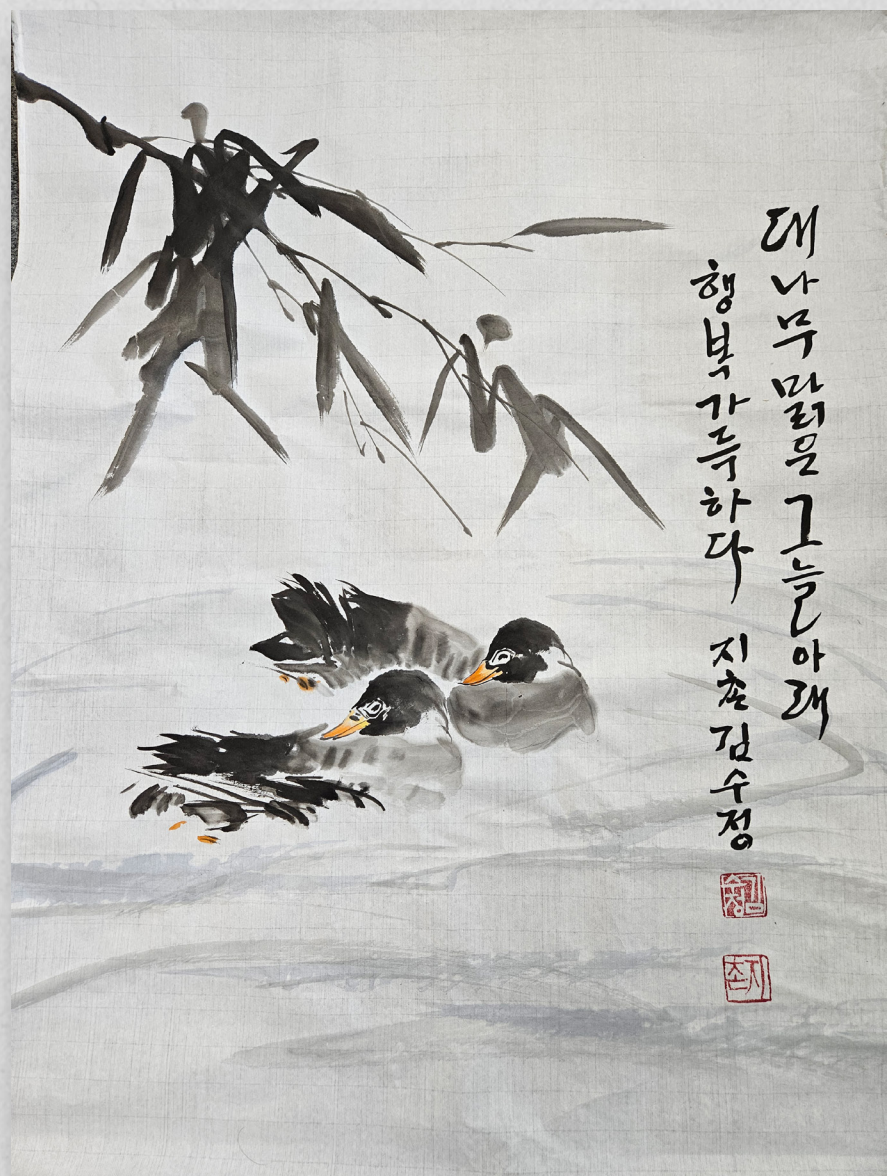 대나무 맑은 그늘 아래
행복 가득하다 지촌 김수정
김수정
지촌